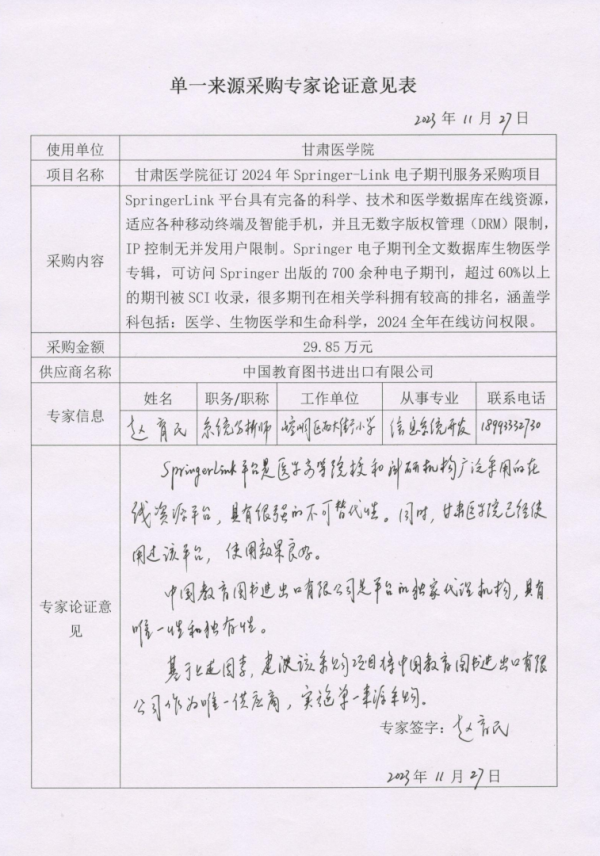 单一来源采购专家论证意见表
2023年11月27日
使用单位 甘肃医学院
项目名称 甘肃医学院征订 2024 年 Springer-Link 电子期刊服务采购项目
采购内容
SpringerLink 平台具有完备的科学、技术和医学数据库在线资源，
适应各种移动终端及智能手机，并且无数字版权管理（DRM）限制，
IP 控制无并发用户限制。Springer 电子期刊全文数据库生物医学
专辑，可访问 Springer 出版的 700 余种电子期刊，超过 60%以上
的期刊被 SCI 收录，很多期刊在相关学科拥有较高的排名，涵盖学
科包括：医学、生物医学和生命科学，2024 全年在线访问权限。
采购金额 29.85 万元
供应商名称 中国教育图书进出口有限公司
专家信息
姓名 职务/职称 工作单位 从事专业 联系电话
赵育民 系统分析师 崆峒区西大街小学 信息系统开发 18993332730
专家论证意见
SpringerLink平台是医学高等院校和科研机构广泛采用的在
线资源平台，具有很强的不可替代性。同时，甘肃医学院已经使
用过该平台，使用效果良好。
中国教育图书进出口有限公司是平台的独家代理机构，具有
唯一性和独存性。
基于上述因素，建议该采购项目将中国教育图书进出口有限
公司作为唯一供应商，实施单一来源采购。
专家签字：赵育民
2023年11月27日